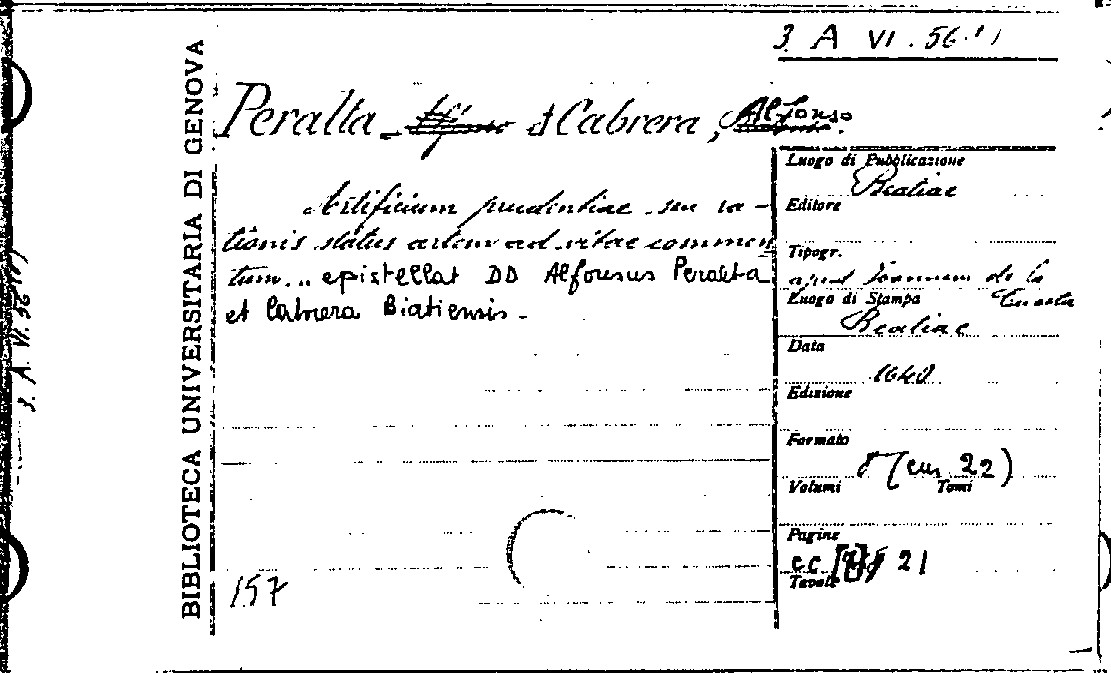 3. A VI. 56.11
BIBLIOTECA UNIVERSITARIA DI GENOVA
Peralta et Cabrera, Alfonso.
Artificium prudentiae seu ra-
tionis status artem ad vitae commen
tum... epistellat DD Alfonsus Peralta
et Cabrera Biatiensis.
157
Luogo di Pubblicazione
Beatiae
Editore
Tipogr.
apud Joannem de la Cuesta
Luogo di Stampa
Beatiae
Data
1640
Edizione
Formato
8 (cm 22)
Volumi Tomi
Pagine
cc 21
Tavole
3. A VI. 56